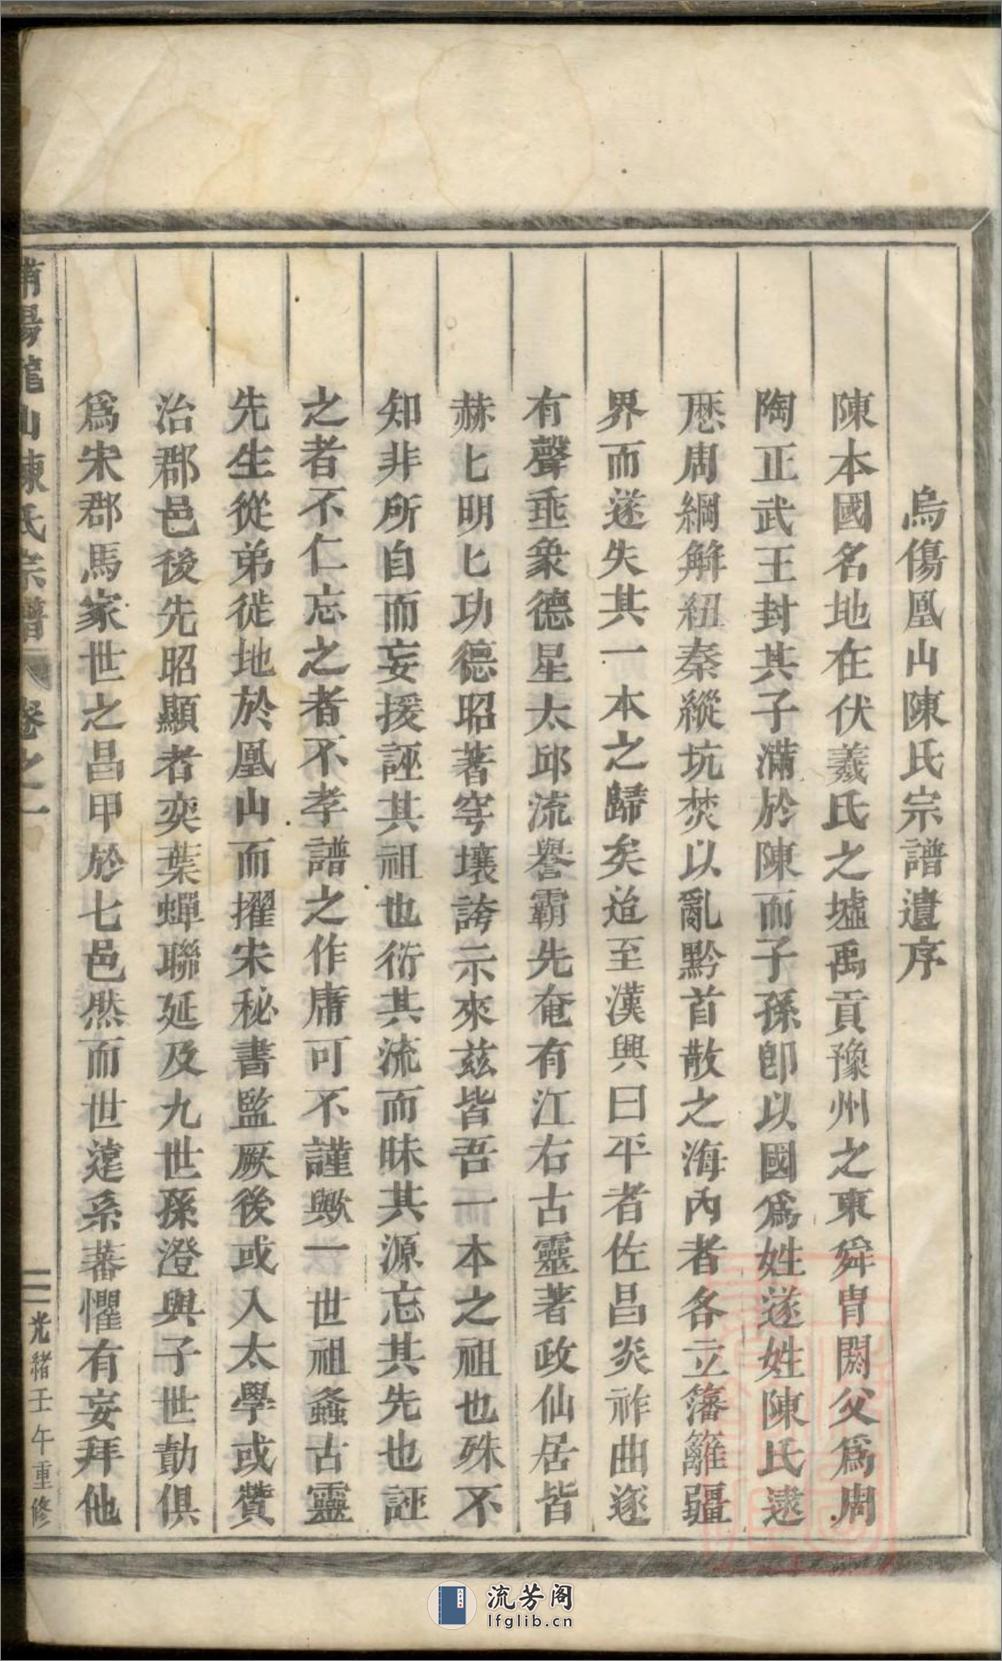 烏傷凰山陳氏宗譜遺序
陳本國名地在伏羲氏之墟禹貢豫州之東舜胄閼父爲周
陶正武王封其子滿於陳而子孫卽以國爲姓遂姓陳氏逮
歷周綱解紐秦縱坑焚以亂黔首散之海內者各立籓籬疆
界而遂失其一本之歸矣迨至漢興曰平者佐昌炎祚曲逐
有聲垂象德星太邱流譽霸先奄有江右古靈著政仙居皆
赫匕明匕功德昭著穹壤誇示來兹皆吾一本之祖也殊不
知非所自而妄援誣其祖也衍其流而昧其源忘其先也誣
之者不仁忘之者不孝譜之作庸可不謹歟一世祖螽古靈
先生從弟徙地於凰山而擢宋秘書監厥後或入太學或贊
治郡邑後先昭顯者奕葉蟬聯延及九世孫澄與子世勣俱
爲宋郡馬家世之昌甲於七邑然而世遠系蕃懼有妄拜他
陽龍山陳氏宗譜 卷之一
二 光緒壬午重修
流芳阁
lfglib.cn